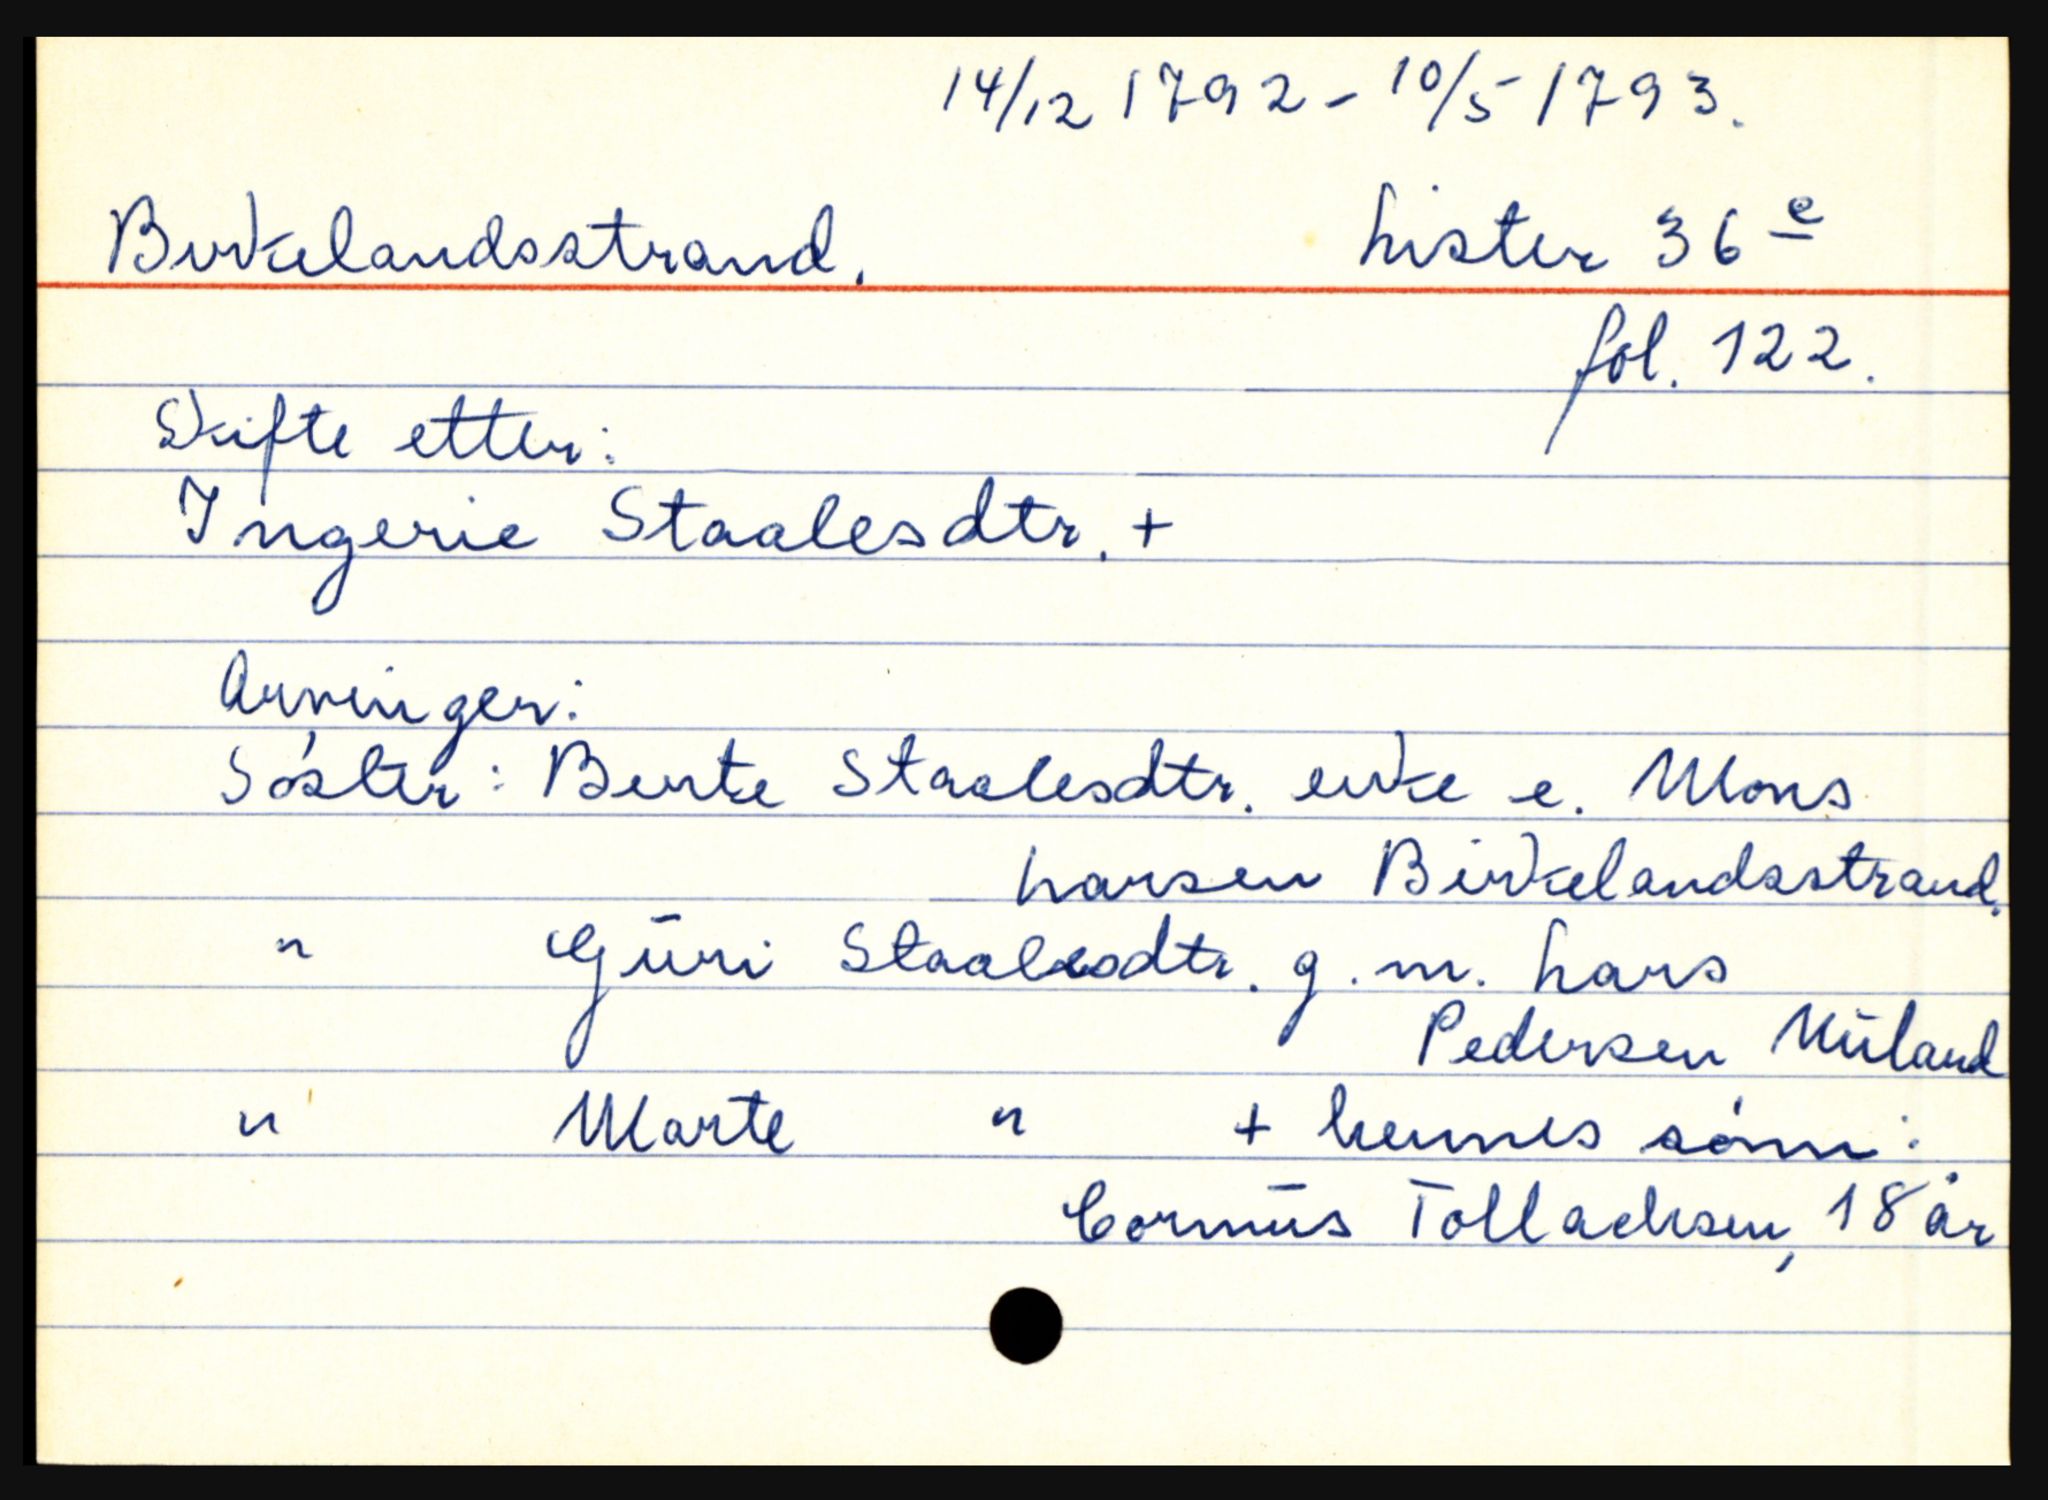 14/12 1792 - 10/5 1793.
Birkelandsstrand. Lister 36 e
fol. 122.
Skifte etter:
Ingerie Staalesdtr. +
Arvinger:
Søster: Berte Staalesdtr. enke e. Mons
Larsen Birkelandsstrand.
" Gūri Staalesdtr. g. m. Lars
Pedersen Mūland
" Marte " + hennes sønn:
Cornūs Tollachsen, 18 år